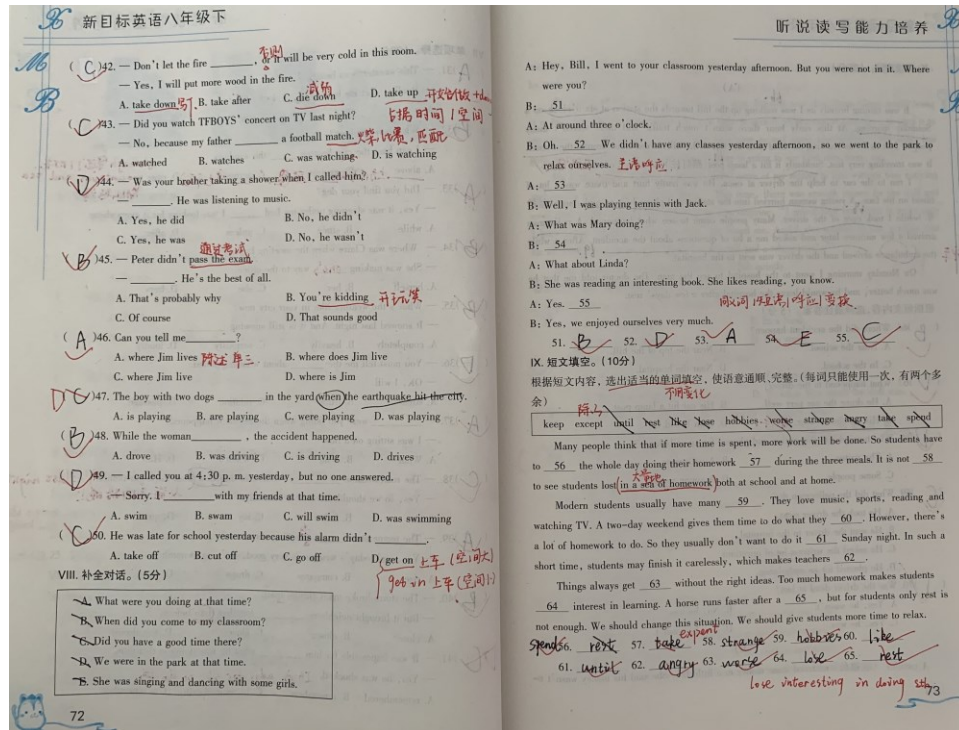 新目标英语八年级下
( C )42. — Don't let the fire ________, or it will be very cold in this room.
否则
— Yes, I will put more wood in the fire.
A. take down B. take after C. die down D. take up
减弱
开始做
占据时间/空间
( C )43. — Did you watch TFBOYS' concert on TV last night?
— No, because my father ________ a football match.
火柴,比赛,匹配
A. watched B. watches C. was watching D. is watching
( D )44. — Was your brother taking a shower when I called him?
— ________. He was listening to music.
A. Yes, he did B. No, he didn't
C. Yes, he was D. No, he wasn't
通过考试
( B )45. — Peter didn't pass the exam.
— ________. He's the best of all.
A. That's probably why B. You're kidding 开玩笑
C. Of course D. That sounds good
( A )46. Can you tell me________?
A. where Jim lives 陈述 单三 B. where does Jim live
C. where Jim live D. where is Jim
D( C )47. The boy with two dogs ________ in the yard when the earthquake hit the city.
A. is playing B. are playing C. were playing D. was playing
( B )48. While the woman________, the accident happened.
A. drove B. was driving C. is driving D. drives
( D )49. — I called you at 4:30 p. m. yesterday, but no one answered.
— Sorry. I ________with my friends at that time.
A. swim B. swam C. will swim D. was swimming
( C )50. He was late for school yesterday because his alarm didn't ________.
A. take off B. cut off C. go off D. get on 上车 (空间大)
get in 上车 (空间小)
VIII. 补全对话。(5分)
A. What were you doing at that time?
B. When did you come to my classroom?
C. Did you have a good time there?
D. We were in the park at that time.
E. She was singing and dancing with some girls.
72
听说读写能力培养
A: Hey, Bill, I went to your classroom yesterday afternoon. But you were not in it. Where
were you?
B: 51
A: At around three o'clock.
B: Oh. 52 We didn't have any classes yesterday afternoon, so we went to the park to
relax ourselves. 主语呼应
A: 53
B: Well, I was playing tennis with Jack.
A: What was Mary doing?
B: 54
A: What about Linda?
B: She was reading an interesting book. She likes reading, you know.
A: Yes. 55
B: Yes, we enjoyed ourselves very much.
51. B 52. D 53. A 54. E 55. C
IX. 短文填空。(10分)
根据短文内容,选出适当的单词填空,使语意通顺、完整。(每词只能使用一次,有两个多
余)
不用变化
除了
keep except until rest like lose hobbies worse strange angry take spend
Many people think that if more time is spent, more work will be done. So students have
to 56 the whole day doing their homework 57 during the three meals. It is not 58
大量的
to see students lost in a sea of homework both at school and at home.
Modern students usually have many 59 . They love music, sports, reading and
watching TV. A two-day weekend gives them time to do what they 60 . However, there's
a lot of homework to do. So they usually don't want to do it 61 Sunday night. In such a
short time, students may finish it carelessly, which makes teachers 62 .
Things always get 63 without the right ideas. Too much homework makes students
64 interest in learning. A horse runs faster after a 65 , but for students only rest is
not enough. We should change this situation. We should give students more time to relax.
spend 56. rest 57. take expent 58. strange 59. hobbies 60. like
61. until 62. angry 63. worse 64. lose 65. rest
lose interesting in doing sth
73